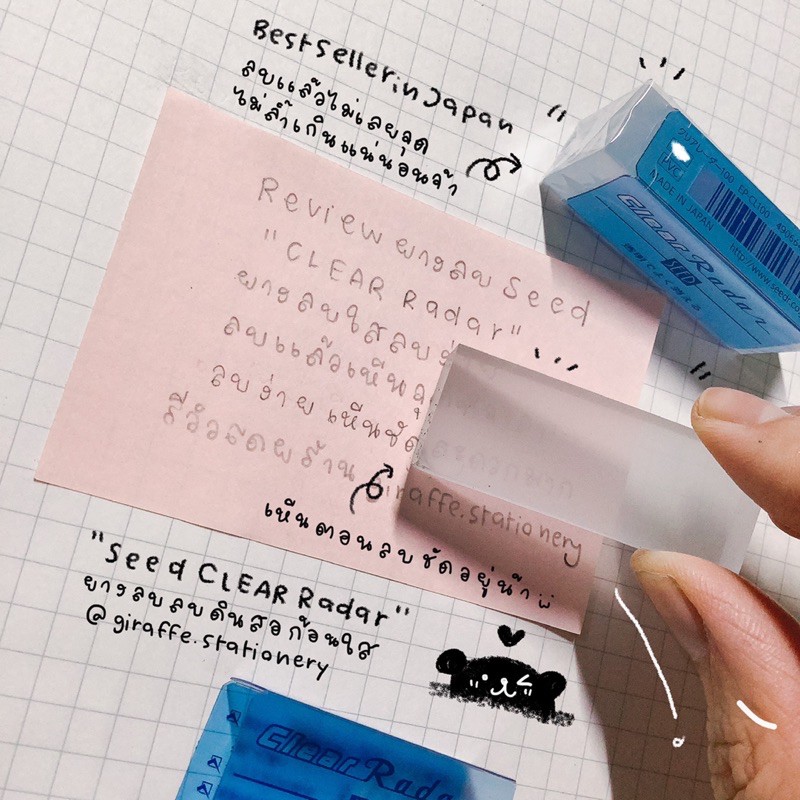 Best Seller in Japan
ลบแล้วไม่เลยจุด
ไม่ล้ำเกินแน่นอนจ้า
クリアレーダー100 EP-CL100
PVC
MADE IN JAPAN
Clear Radar
SEED
Review ยางลบ Seed
"CLEAR Radar"
ยางลบใสลบ
ลบแล้วเห็น
ลบง่าย เห็นชัด
รีวิวติดผร้าน giraffe.stationery
เห็นตอนลบชัดอยู่น้า
"Seed CLEAR Radar"
ยางลบลบดินสอก้อนใส
@giraffe.stationery
Clear Radar